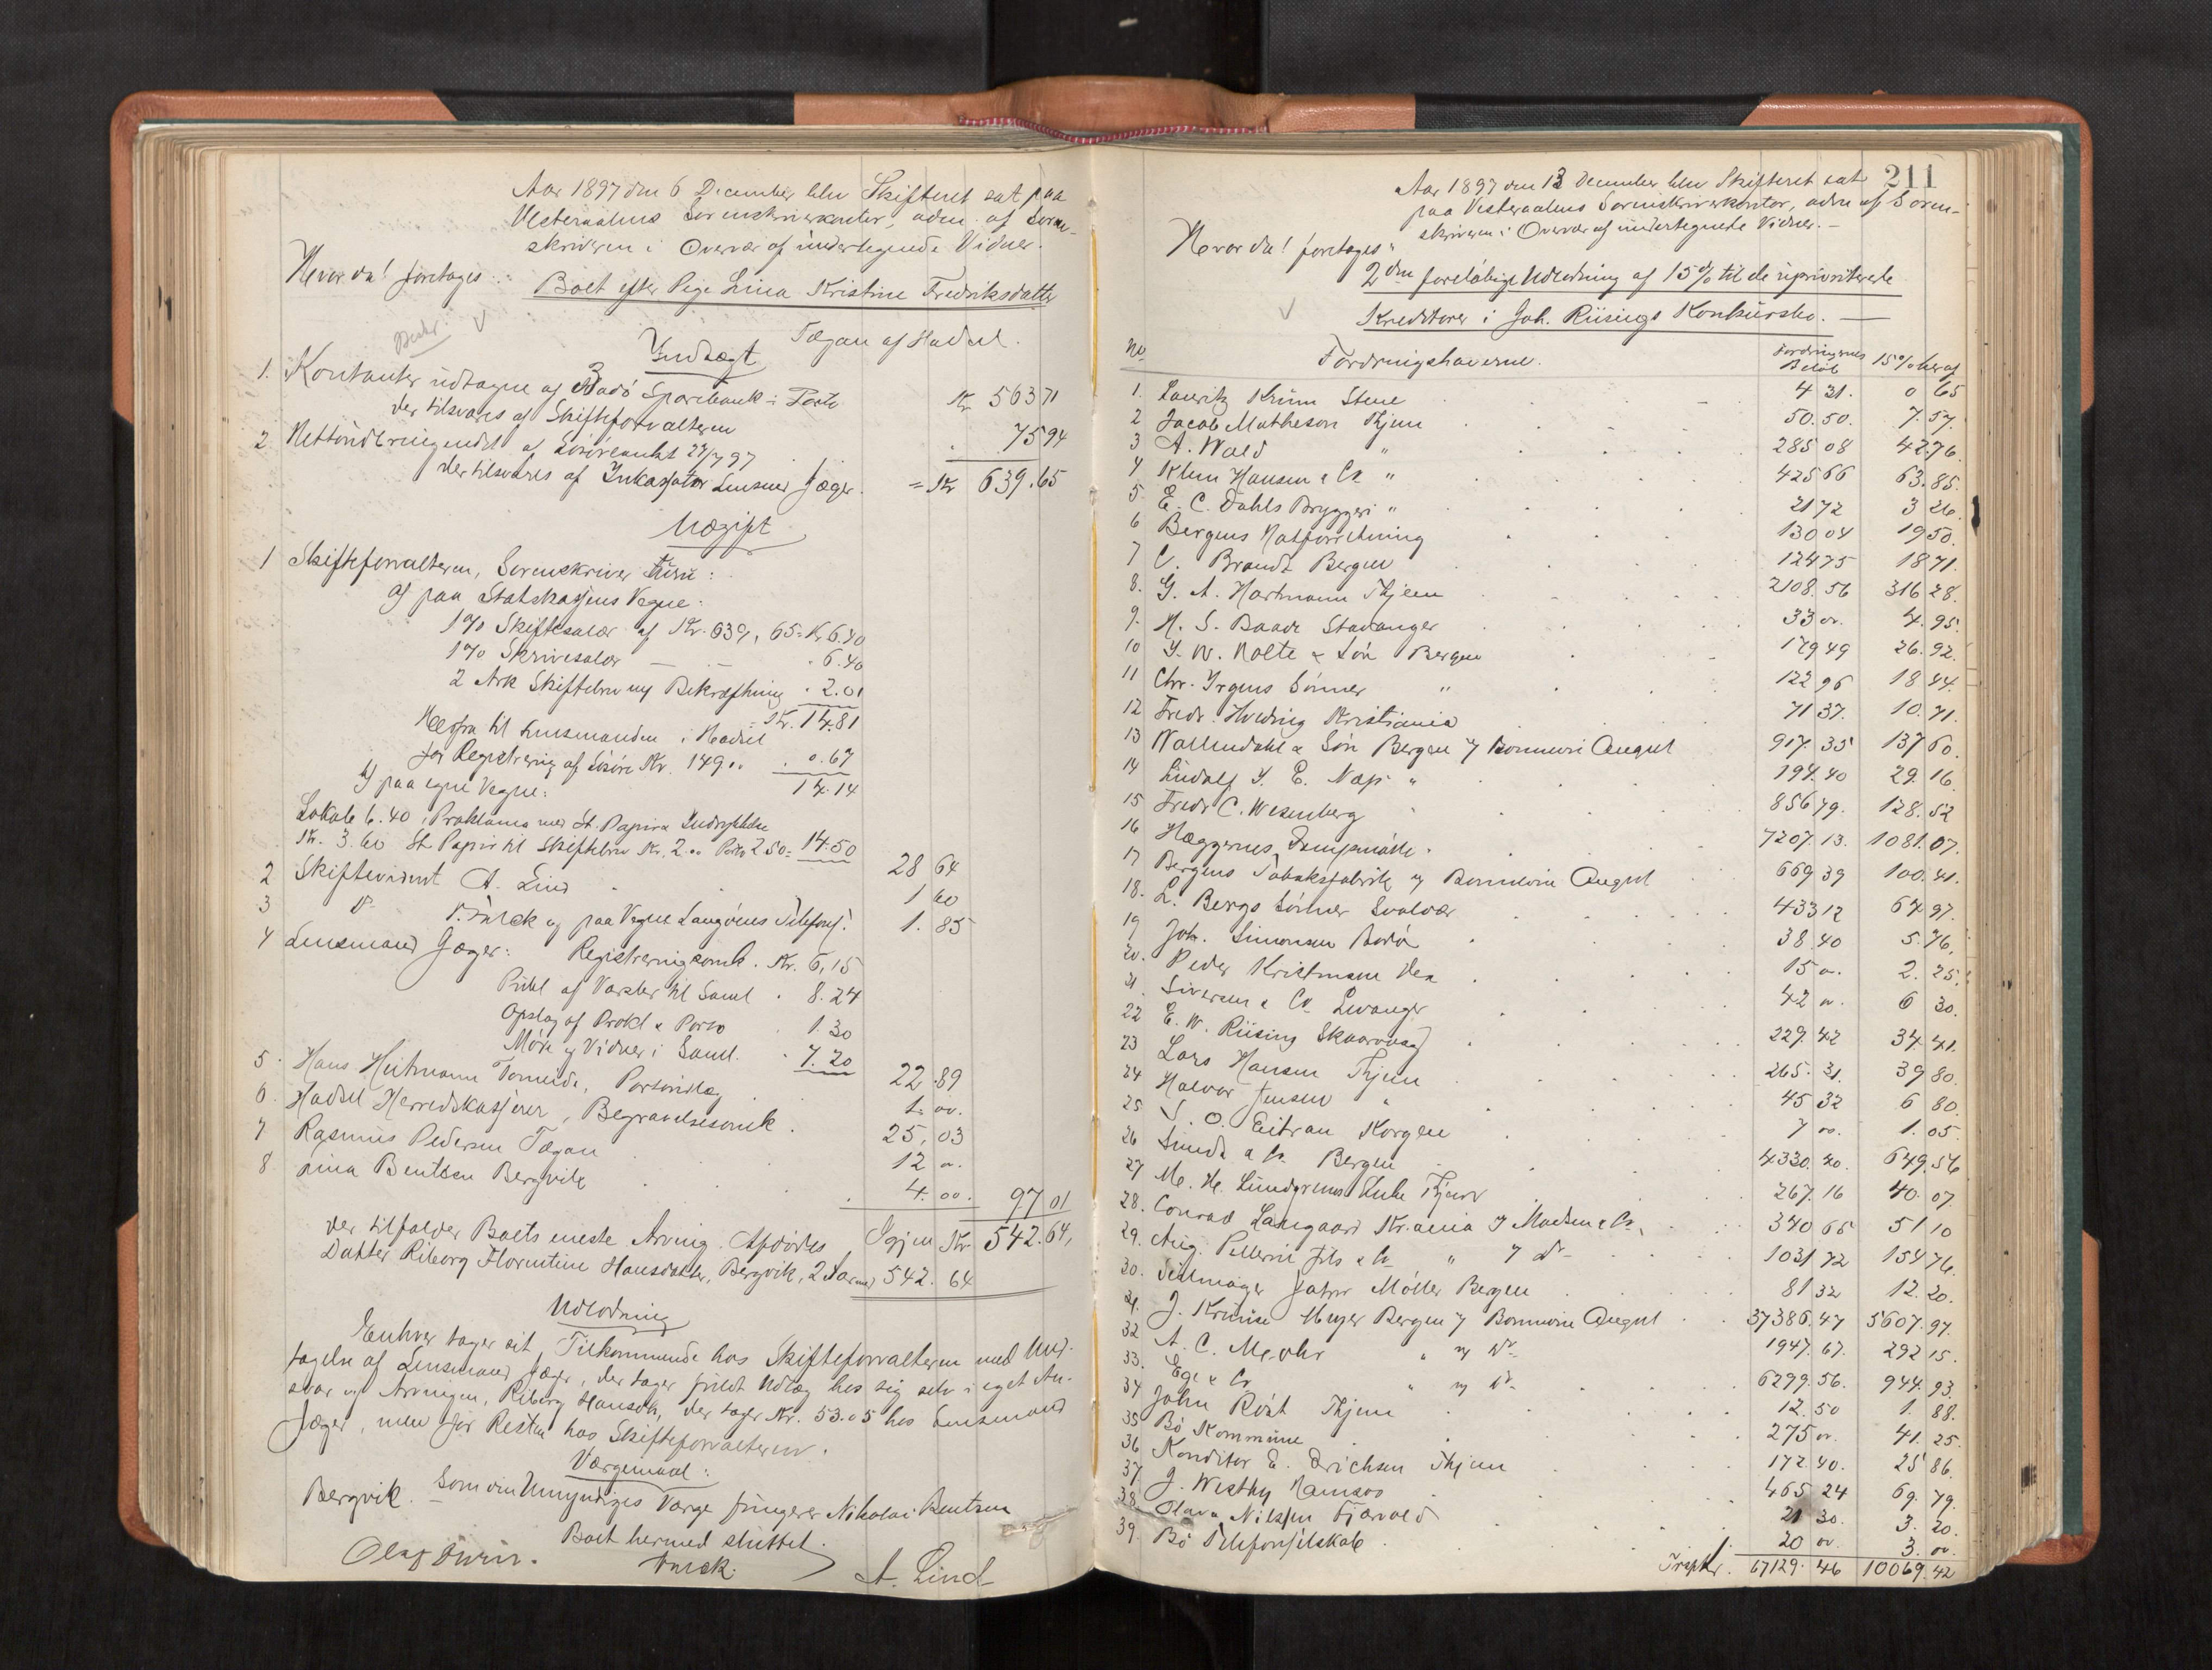 Aar 1897 den 6 December blev Skifteret sat paa
Vesteraalens Sorenskriverkontor, adm. af Soren-
skriveren i Overvær af undertegnede Vidner.
Hvor da! foretages:
Boet efter Pige Lina Kristine Fredriksdatter
Tægan af Hadsel.
Indtægt
1. Kontanter udtagne af Bodö Sparebank i Porto
der tilsvares af Skifteforvalteren Kr. 563 71
2. Nettoudbringendet af Lösöreauks 27/7 97
der tilsvares af Inkassator Lensmd Jæger. 75 94
= Kr 639.65
Udgift
1 Skifteforvalteren, Sorenskriver
a) paa Statskassens Vegne:
1% Skiftesalær af Kr. 639,65 = Kr 6.40
1% Skrivesalær — — . 6.40
2 Ark Skiftebrev og Bekræftning . 2.01
= Kr. 14.81
Herfra til Lensmanden i Hadsel
for Registrering af Lösöre Kr. 149.. . 0.67
14.14
b) paa egne Vegne:
Lokale 6.40, Proklama med St. Papir & Indrykkelse
Kr. 3.60 St. Papir til Skiftebrev Kr. 2.. Porto 2.50 = 14.50
28 64
2 Skiftevidnet A. Lind 1 60
3 Do. Turck og paa Vegne Langöenes Telefons. 1. 85
4 Lensmand Jæger: Registreringsomk. Kr. 6,15
Publ af Varsler til Saml . 8.24
Opslag af Prokl & Porto . 1.30
Möde og Vidner i Saml. . 7.20
22.89
5. Hans Heitmann Tomeide, Portoudlæg 1. 00.
6. Hadsel Herredskasserer, Begravelsesomk. 25,03
7 Rasmus Pedersen Tægan 12 "
8 Lina Bentsen Bergvik 4.00. 97 01
Igjen Kr 542.64,
der tilfalder Boets eneste Arving. Afdödes
Datter Riborg Florentine Hansdatter, Bergvik, 2 Aar med 542. 64
Udlodning
Enhver tager sit Tilkommende hos Skifteforvalteren med Und-
tagelse af Lensmand Jæger, der tager fuldt Udlæg hos sig selv i eget An-
svar og Arvingen, Riborg Hansdtr, der tager Kr. 53.05 hos Lensmand
Jæger, men for Resten hos Skifteforvalteren.
Værgemaal:
Som den Umyndiges Værge fungerer Nikolai Bentsen
Bergvik.
Boet hermed sluttet.
Turck.
A. Lind
211
Aar 1897 den 13 December blev Skifteret sat
paa Vesteraalens Sorenskriverkontor, adm af Soren-
skriveren i Overvær af undertegnede Vidner. —
Hvor da! foretages:
2den foreløbige Udlodning af 15% til de uprioriterede
Kreditorer i Joh. Riisings Konkursbo. —
No Fordringshaverne. Fordringernes Beløb 15% heraf
1. Lauritz Krüm Stene 4 31. 0 65
2 Jacob Matheson Thjem 50.50. 7.57.
3 A. Wold " 285 08 42.76.
4 Klem Hansen & Co " 425 66 63.85.
5. E. C. Dahls Bryggeri " 21 72 3 26.
6 Bergens Notforretning 130 04 19 50.
7 C. Brandt Bergen 124 75 18 71.
8. G. A. Hartmann Thjem 2108.56 316 28.
9. H. S. Baade Stavanger 33 00. 4.95.
10 J. W. Nolte & Sön Bergen 179 49 26.92.
11 Chr. Irgens Sönner " 122 96 18 44.
12 Fredr. Hveding Kristiania 71 37. 10.71.
13 Wallendahl & Sön Bergen v/ Bonnevie Angel 917.35 137 60.
14 Ludolf J. E. Næss " 194.40 29.16.
15 Fredr C. Wesenberg " 856 79. 128.52
16 Hæggernes Dampmölle. 7207.13. 1081.07.
17 Bergens Tobaksfabrik v/ Bonnevie Angel 669 39 100.41.
18. L. Bergs Sönner Svolvær 433 12 64 97.
19 Joh. Simonsen Bodö 38.40 5.76.
20. Peder Kristensen 15 00. 2. 25.
21. Siversen & Co Levanger 42 00. 6 30.
22 E. W. Riising Skaarvaag 229.42 34.41.
23 Lars Hansen Thjem 265.31. 39 80.
24 Halvor Jensen " 45 32 6 80.
25 S. O. Eitran Korgen 7 00. 1. 05.
26 Sundt & Co. Bergen 4330.40. 649.56
27 M. H. Lundgrens Enke Thjem 267.16 40.07.
28. Conrad Langaard Kr.ania v/ Madsen & Co. 340 65 51 10
29. Aug. Pellerin fils & Co " v/ Do 1031 72 154 76.
30. Seilmager Jahn Möller Bergen 81 32 12.20.
31. J. Krause Meyer Bergen v/ Bonnevie Angel 37386.47 5607.97.
32 A. C. Mohr " v/ Do 1947.67. 292 15.
33. Ege & Co " v/ Do 6299.56. 944.93.
34 John Röst Thjem 12.50 1. 88.
35 Bö Kommune 275 00. 41.25.
36 Konditor E. Erichsen Thjem 172.40. 25 86.
37. J. Westby Namsos 465 24 69.79.
38. Olava Nilssen Fjærvold 21 30. 3.20.
39. Bö Telefonselskab 20 00. 3. 00.
Trsptr. 67129.46 10069.42